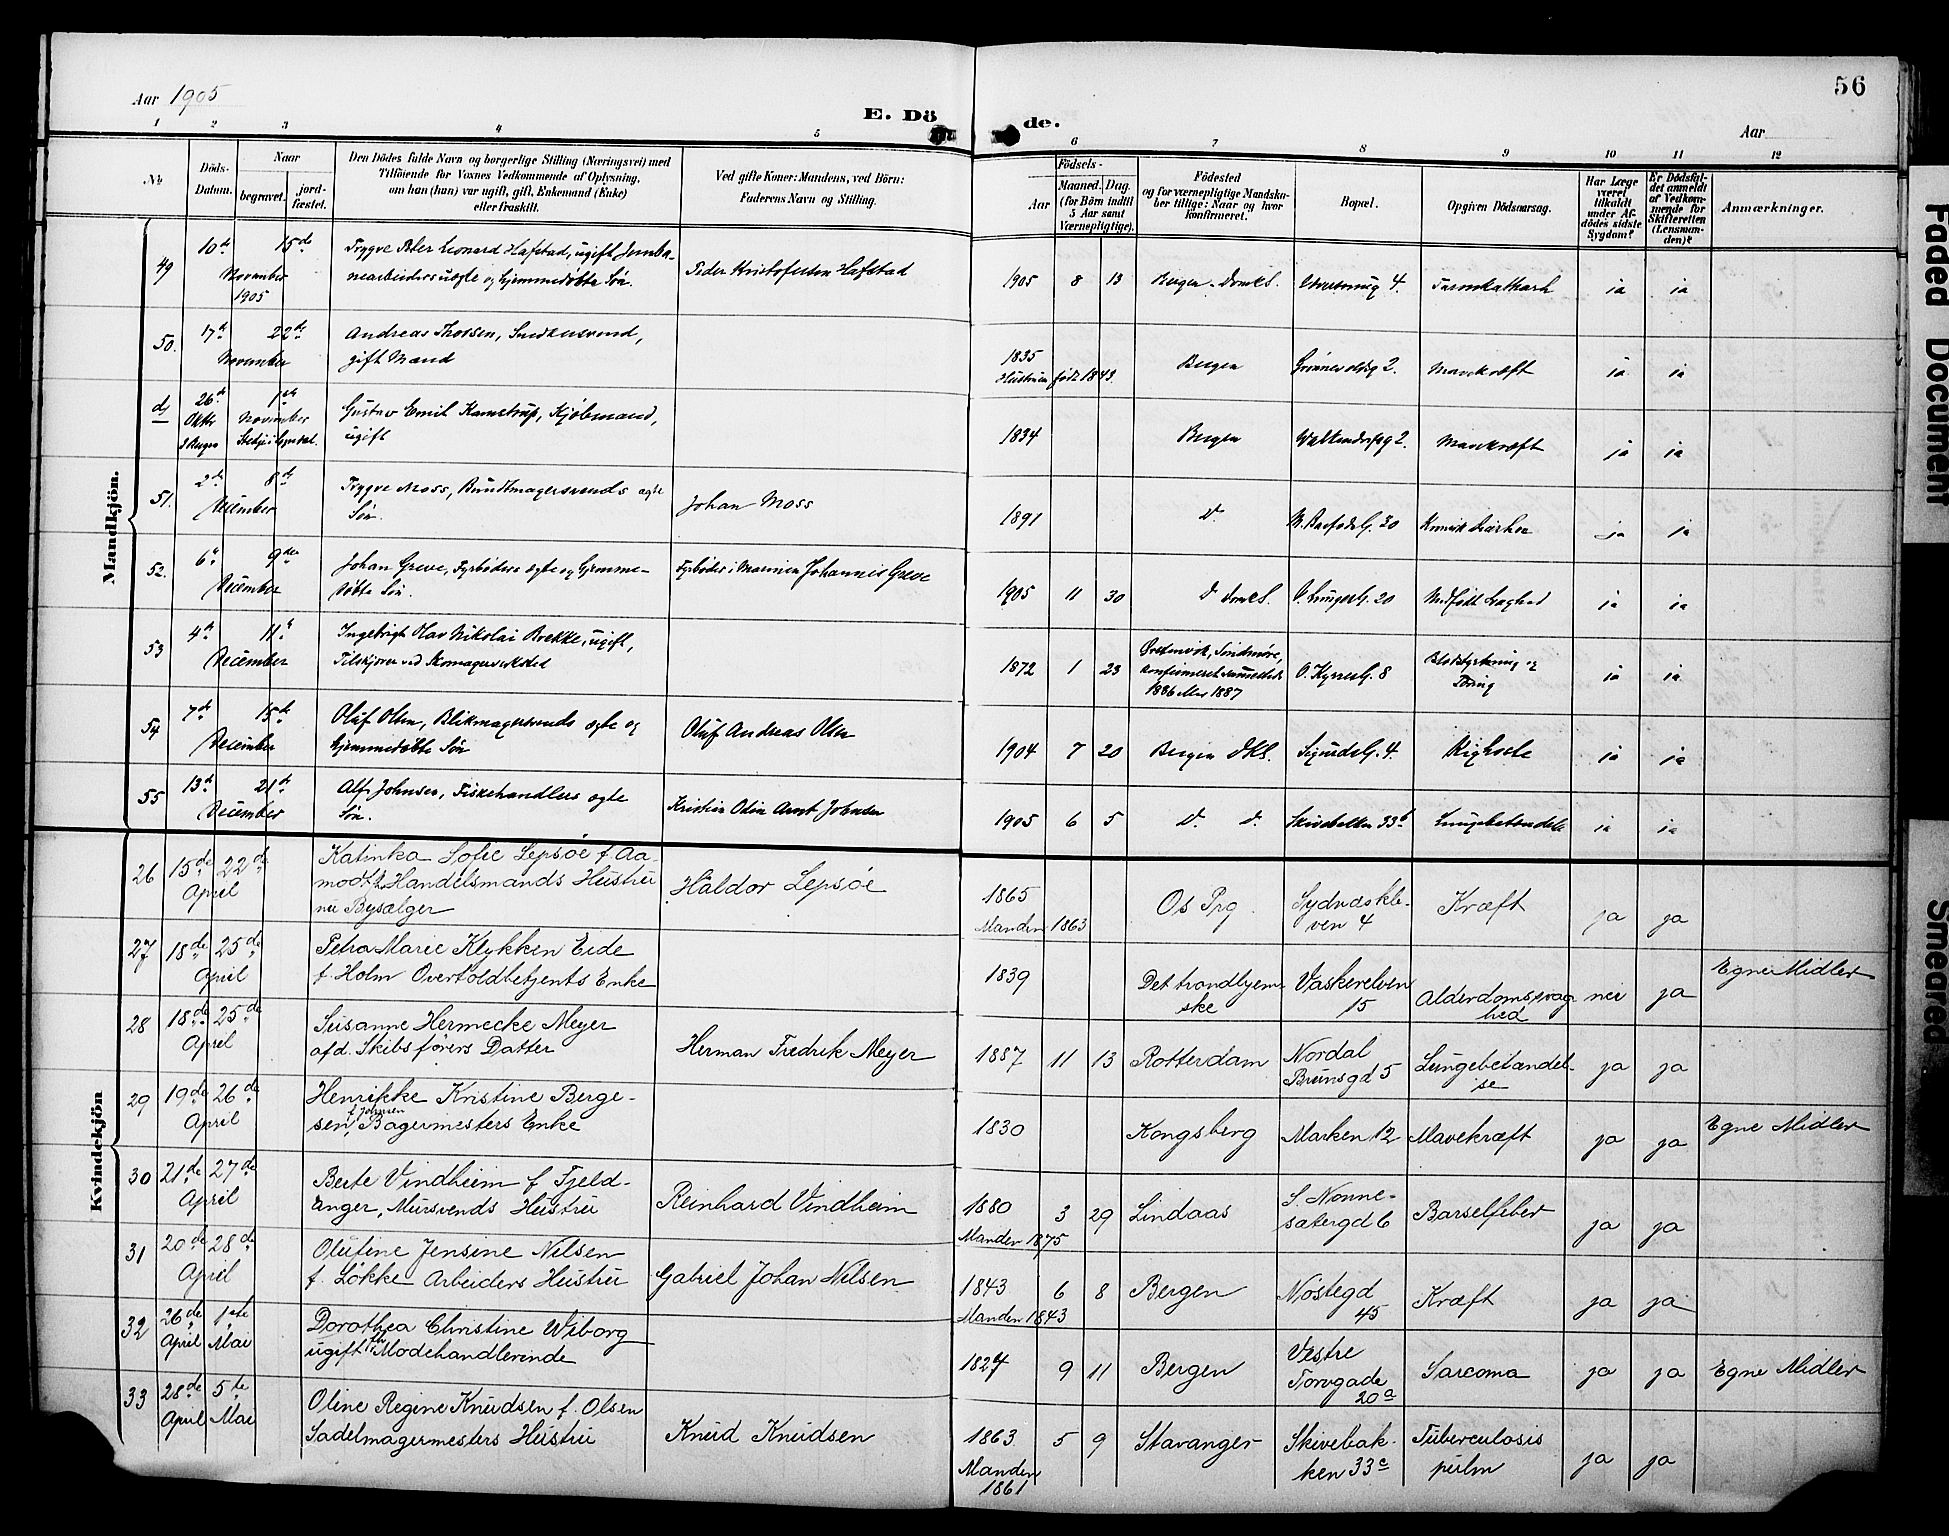 56
Aar 1905
E. Dö
de.
Aar
1 2 3 4 5
6 7 8 9 10 11 12
No
Döds-
Datum.
Naar
begravet.
jord-
fæstet.
Den Dödes fulde Navn og borgerlige Stilling (Næringsvei) med
Tilföiende for Voxnes Vedkommende af Oplysning,
om han (hun) var ugift, gift, Enkemand (Enke)
eller fraskilt.
Ved gifte Koner: Mandens, ved Börn:
Faderens Navn og Stilling.
Födsels-
Aar
Maaned.
Dag.
(for Börn indtil
5 Aar samt
Værnepligtige).
Födested
og for værnepligtige Mandska-
ber tillige: Naar og hvor
konfirmeret.
Bopæl.
Opgiven Dödsaarsag.
Har Læge
været
tilkaldt
under Af-
dödes sidste
Sygdom?
Er Dödsfal-
det anmeldt
af Vedkom-
mende for
Skifteretten
(Lensman-
den)?
Anmærkninger.
Mandkjön.
49 10de 15de
November
1905
Trygve Peter Leonard Hafstad, ugift Jernba-
nearbeiders uægte og hjemmedøbte Søn.
Peder Kristofersen Hafstad
1905 8 13 Bergen. Domks. 4. Tarmkatharh ja ja
50. 17de 22de
November
Andreas Thorsen,
gift Mand
1835
Hustruen født 1843.
Bergen 2. Mavekræft ja ja
26de 1ste
Oktbr November
Gustav Emil Kamstrup, Kjøbmand,
ugift
1834 Bergen 2. Mavekræft ja ja
51. 2de 8de
December
Trygve Moss, Bundtmagersvends ægte
Søn.
Johan Moss
1891 D. 30 ja ja
52. 6te 9de
December
Johan Greve, Fyrbøders ægte og hjemme-
døbte Søn.
Fyrbøder i Marinen Johannes Greve
1905 11 30 D Domks. 20 Medfødt Svaghed ja ja
53 4de 11te
December
Ingebrigt Olav Nikolai Brekke, ugift,
Tilskjærer ved Skomagerverksted
1872 1 23 Søndmøre,
konfirmeret sammesteds
1886 eller 1887
O. Kyrresg. 8
ja ja
54 7de 15de
December
Oluf Olsen, Blikmagersvends ægte og
hjemmedøbte Søn
Oluf Andreas Olsen
1904 7 20 Bergen Dks. Sigurdsg. 4. Kighoste ja ja
55 13de 21de
December
Alf Johnsen, Fiskehandlers ægte
Søn.
Kristian Odin Arnt Johnsen
1905 6 5 D. D. Skivebakken 33b Lungebetændelse ja ja
Kvindekjön
26 15de 22de
April
Katinka Sofie Lepsøe f. Aa-
modt, Handelsmands Hustru
nu Bysælger
Haldor Lepsøe
1865
Manden 1863
Os Prg. Sydnæskle-
ven 4
Kræft ja ja
27 18de 25de
April
Petra Marie Klykken Eide
f. Holm Overtoldbetjents Enke
1839 Det trondhjem-
ske
Vaskerelven
15
Alderdomssvag-
hed
nei ja Egne Midler
28 18de 25de
April
Susanne Hermecke Meyer
afd. Skibsførers Datter
Herman Fredrik Meyer
1887 11 13 Rotterdam Nordal
Brunsgd 5
Lungebetændel-
se
ja ja
29 19de 26de
April
Henrikke Kristine Berge-
sen, f. Johnsen Bagermesters Enke
1830 Kongsberg Marken 12 Mavekræft ja ja Egne Midler
30 21de 27de
April
Berte Vindheim f. Fjeld-
anger, Mursvends Hustru
Reinhard Vindheim
1880 3 29
Manden 1875
Lindaas S. Nonne-
sætergd 6
Barselfeber ja ja
31 20de 28de
April
Olufine Jensine Nilsen
f. Løkke Arbeiders Hustru
Gabriel Johan Nilsen
1843 6 8
Manden 1843
Bergen Nøstegd
45
Kræft ja ja
32 26de 1ste
April Mai
Dorothea Christine Wiborg
ugift Modehandlerinde
1827 9 11 Bergen Vestre
Torvgade
20a
Sarcoma ja ja Egne Midler
33 28de 5te
April Mai
Oline Regine Knudsen f. Olsen
Sadelmagermesters Hustru
Knud Knudsen
1863 5 9
Manden
1861
Stavanger Skivebak-
ken 33c
Tuberculosis
pulm
ja ja
Faded Document
Smeared